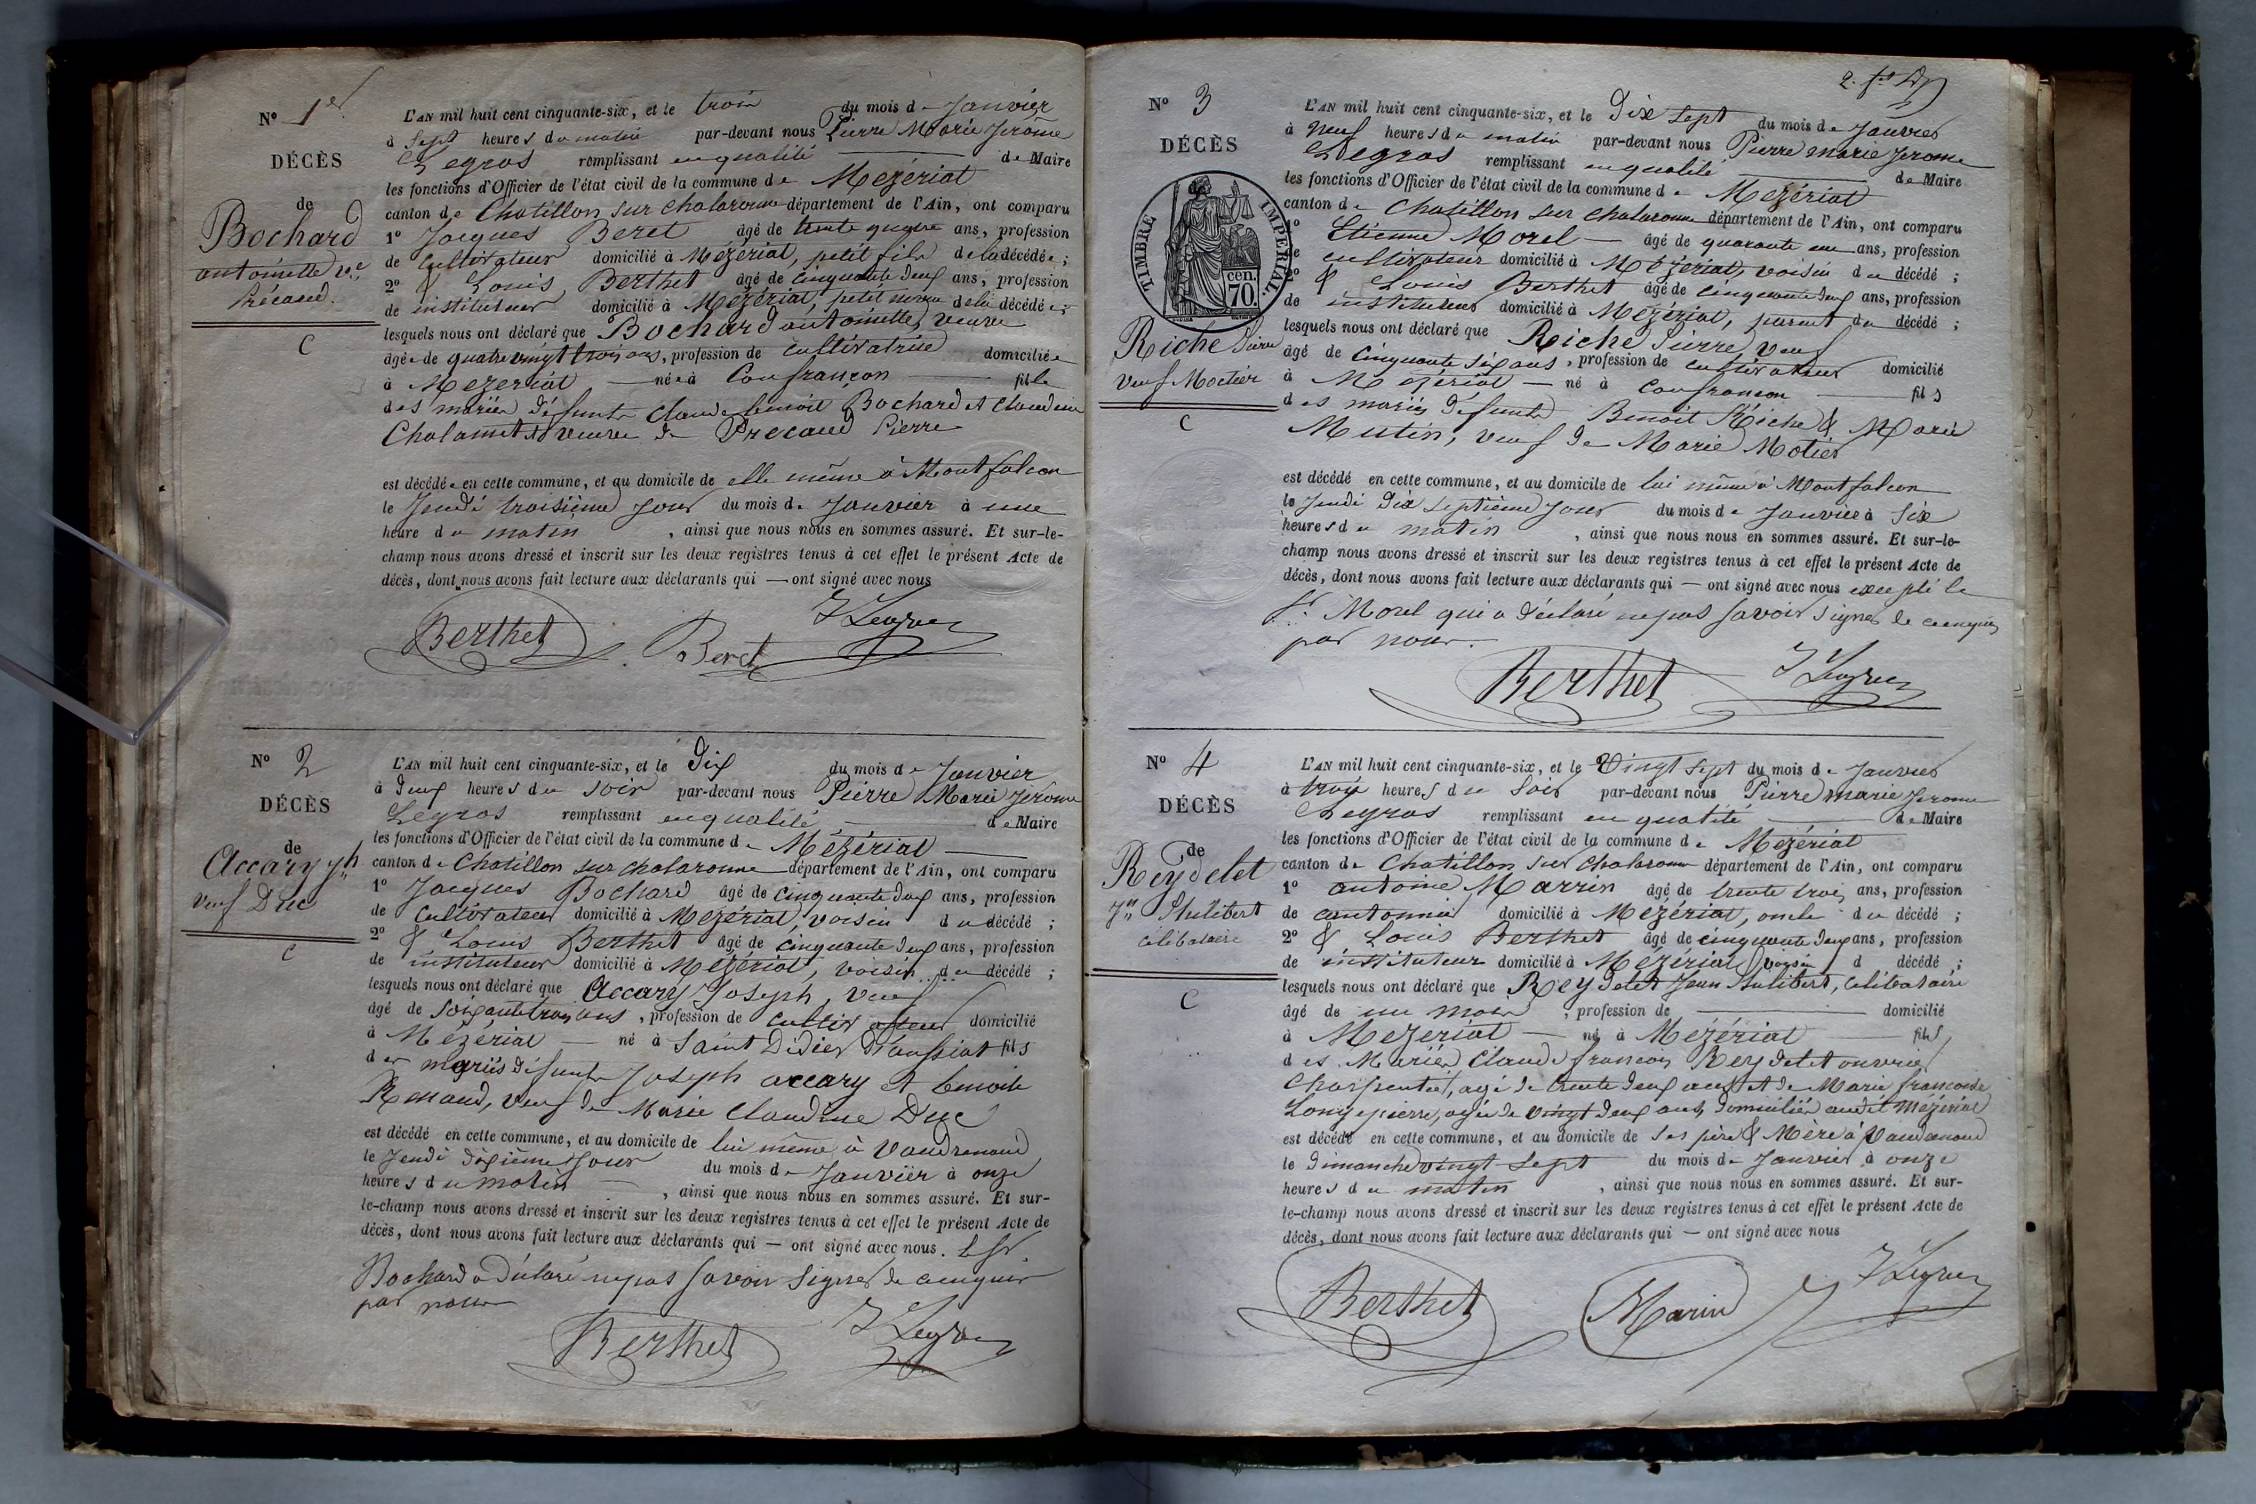 N° 1er
DÉCÈS
de
Bochard
antoinette ve
Précaud.
C
L'AN mil huit cent cinquante-six, et le trois du mois de Janvier
à sept heures du matin par-devant nous Pierre Marie Jerôme
Legros remplissant en qualité de Maire
les fonctions d'Officier de l'état civil de la commune de Mezériat
canton de Chatillon sur chalaronne département de l'Ain, ont comparu
1° Jacques Beret âgé de trente quatre ans, profession
de Cultivateur domicilié à Mézériat, petit fils de la décédée ;
2° & Louis Berthet âgé de cinquante deux ans, profession
de instituteur domicilié à Mézériat, petit neveu de la décédée ;
lesquels nous ont déclaré que Bochard antoinette, veuve
âgée de quatre vingt trois ans, profession de cultivatrice domiciliée
à Mezeriat née à Confrançon fille
des mariés défunts Claude benoit Bochard et Claudine
Chalamet & veuve de Precaud Pierre
est décédée en cette commune, et au domicile de elle même à Montfalcon
le Jeudi troisième jour du mois de Janvier à une
heure du matin, ainsi que nous nous en sommes assuré. Et sur-le-
champ nous avons dressé et inscrit sur les deux registres tenus à cet effet le présent Acte de
décès, dont nous avons fait lecture aux déclarants qui — ont signé avec nous
Berthet Beret
N° 2
DÉCÈS
de
Accary Jh
veuf Duc
C
L'AN mil huit cent cinquante-six, et le dix du mois de Janvier
à deux heures du soir par-devant nous Pierre Marie Jerome
Legros remplissant en qualité de Maire
les fonctions d'Officier de l'état civil de la commune de Mézériat
canton de Chatillon sur chalaronne département de l'Ain, ont comparu
1° Jacques Bochard âgé de cinquante deux ans, profession
de Cultivateur domicilié à Mézériat, voisin du décédé ;
2° & Louis Berthet âgé de cinquante deux ans, profession
de instituteur domicilié à Mézériat, voisin du décédé ;
lesquels nous ont déclaré que Accary Joseph, veuf
âgé de soixante trois ans, profession de cultivateur domicilié
à Mézériat né à Saint Didier d'aussiat fils
des mariés défunts Joseph accary et benoite
Renaud, veuf de Marie Claudine Duc
est décédé en cette commune, et au domicile de lui même à Vaudrenand
le Jeudi dixième jour du mois de Janvier à onze
heures du matin, ainsi que nous nous en sommes assuré. Et sur-
le-champ nous avons dressé et inscrit sur les deux registres tenus à cet effet le présent Acte de
décès, dont nous avons fait lecture aux déclarants qui — ont signé avec nous. le sr.
Bochard a déclaré ne pas savoir signer de ce enquis
par nous
Berthet
2.
N° 3
DÉCÈS
de
TIMBRE IMPERIAL.
cen.
70.
Riche Pierre
veuf Motier
C
L'AN mil huit cent cinquante-six, et le Dix sept du mois de Janvier
à neuf heures du matin par-devant nous Pierre marie Jerome
Legros remplissant en qualité de Maire
les fonctions d'Officier de l'état civil de la commune de Mezériat
canton de Chatillon sur chalaronne département de l'Ain, ont comparu
1° Etienne Morel âgé de quarante un ans, profession
de cultivateur domicilié à Mézériat, voisin du décédé ;
2° & Louis Berthet âgé de cinquante deux ans, profession
de instituteur domicilié à Mézériat, parent du décédé ;
lesquels nous ont déclaré que Riche Pierre veuf
âgé de cinquante six ans, profession de cultivateur domicilié
à Mézériat né à Confrançon fils
des mariés défunts Benoit Riche & Marie
Mutin, veuf de Marie Motier
est décédé en cette commune, et au domicile de lui même à Montfalcon
le Jeudi Dix septième jour du mois de Janvier à six
heures du matin, ainsi que nous nous en sommes assuré. Et sur-le-
champ nous avons dressé et inscrit sur les deux registres tenus à cet effet le présent Acte de
décès, dont nous avons fait lecture aux déclarants qui — ont signé avec nous excepté le
sr. Morel qui a déclaré ne pas savoir signer de ce enquis
par nous.
Berthet
N° 4
DÉCÈS
de
Reydelet
Jn Philibert
célibataire
C
L'AN mil huit cent cinquante-six, et le Vingt sept du mois de Janvier
à trois heures du soir par-devant nous Pierre marie Jerome
Legros remplissant en qualité de Maire
les fonctions d'Officier de l'état civil de la commune de Mezériat
canton de Chatillon sur chalaronne département de l'Ain, ont comparu
1° antoine Marrin âgé de trente trois ans, profession
de cantonnier domicilié à Mézériat, oncle du décédé ;
2° & Louis Berthet âgé de cinquante deux ans, profession
de instituteur domicilié à Mézériat, voisin d décédé ;
lesquels nous ont déclaré que Reydelet Jean Philibert, célibataire
âgé de un mois, profession de domicilié
à Mezeriat né à Mézériat fils
des Mariés Claude françois Reydelet ouvrier
Charpentier, agé de trente deux ans et de Marie françoise
Longepierre, agée de vingt deux ans, domiciliés audit Mézériat
est décédé en cette commune, et au domicile de ses père & Mère à Vaudrenand
le dimanche vingt sept du mois de Janvier à onze
heures du matin, ainsi que nous nous en sommes assuré. Et sur-
le-champ nous avons dressé et inscrit sur les deux registres tenus à cet effet le présent Acte de
décès, dont nous avons fait lecture aux déclarants qui — ont signé avec nous
Berthet Marin